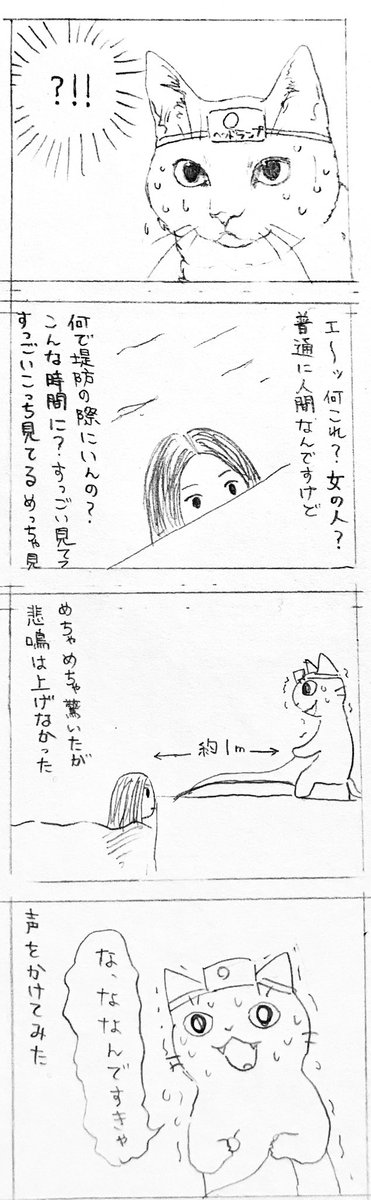 ?!!
ヘッドランプ
エ〜ッ何これ？女の人？
普通に人間なんですけど
何で堤防の際にいんの？
こんな時間に？すっごい見てる
すっごいこっち見てるめっちゃ見
約1m
めちゃめちゃ驚いたが
悲鳴は上げなかった。
な、ななんですきゃ
声をかけてみた